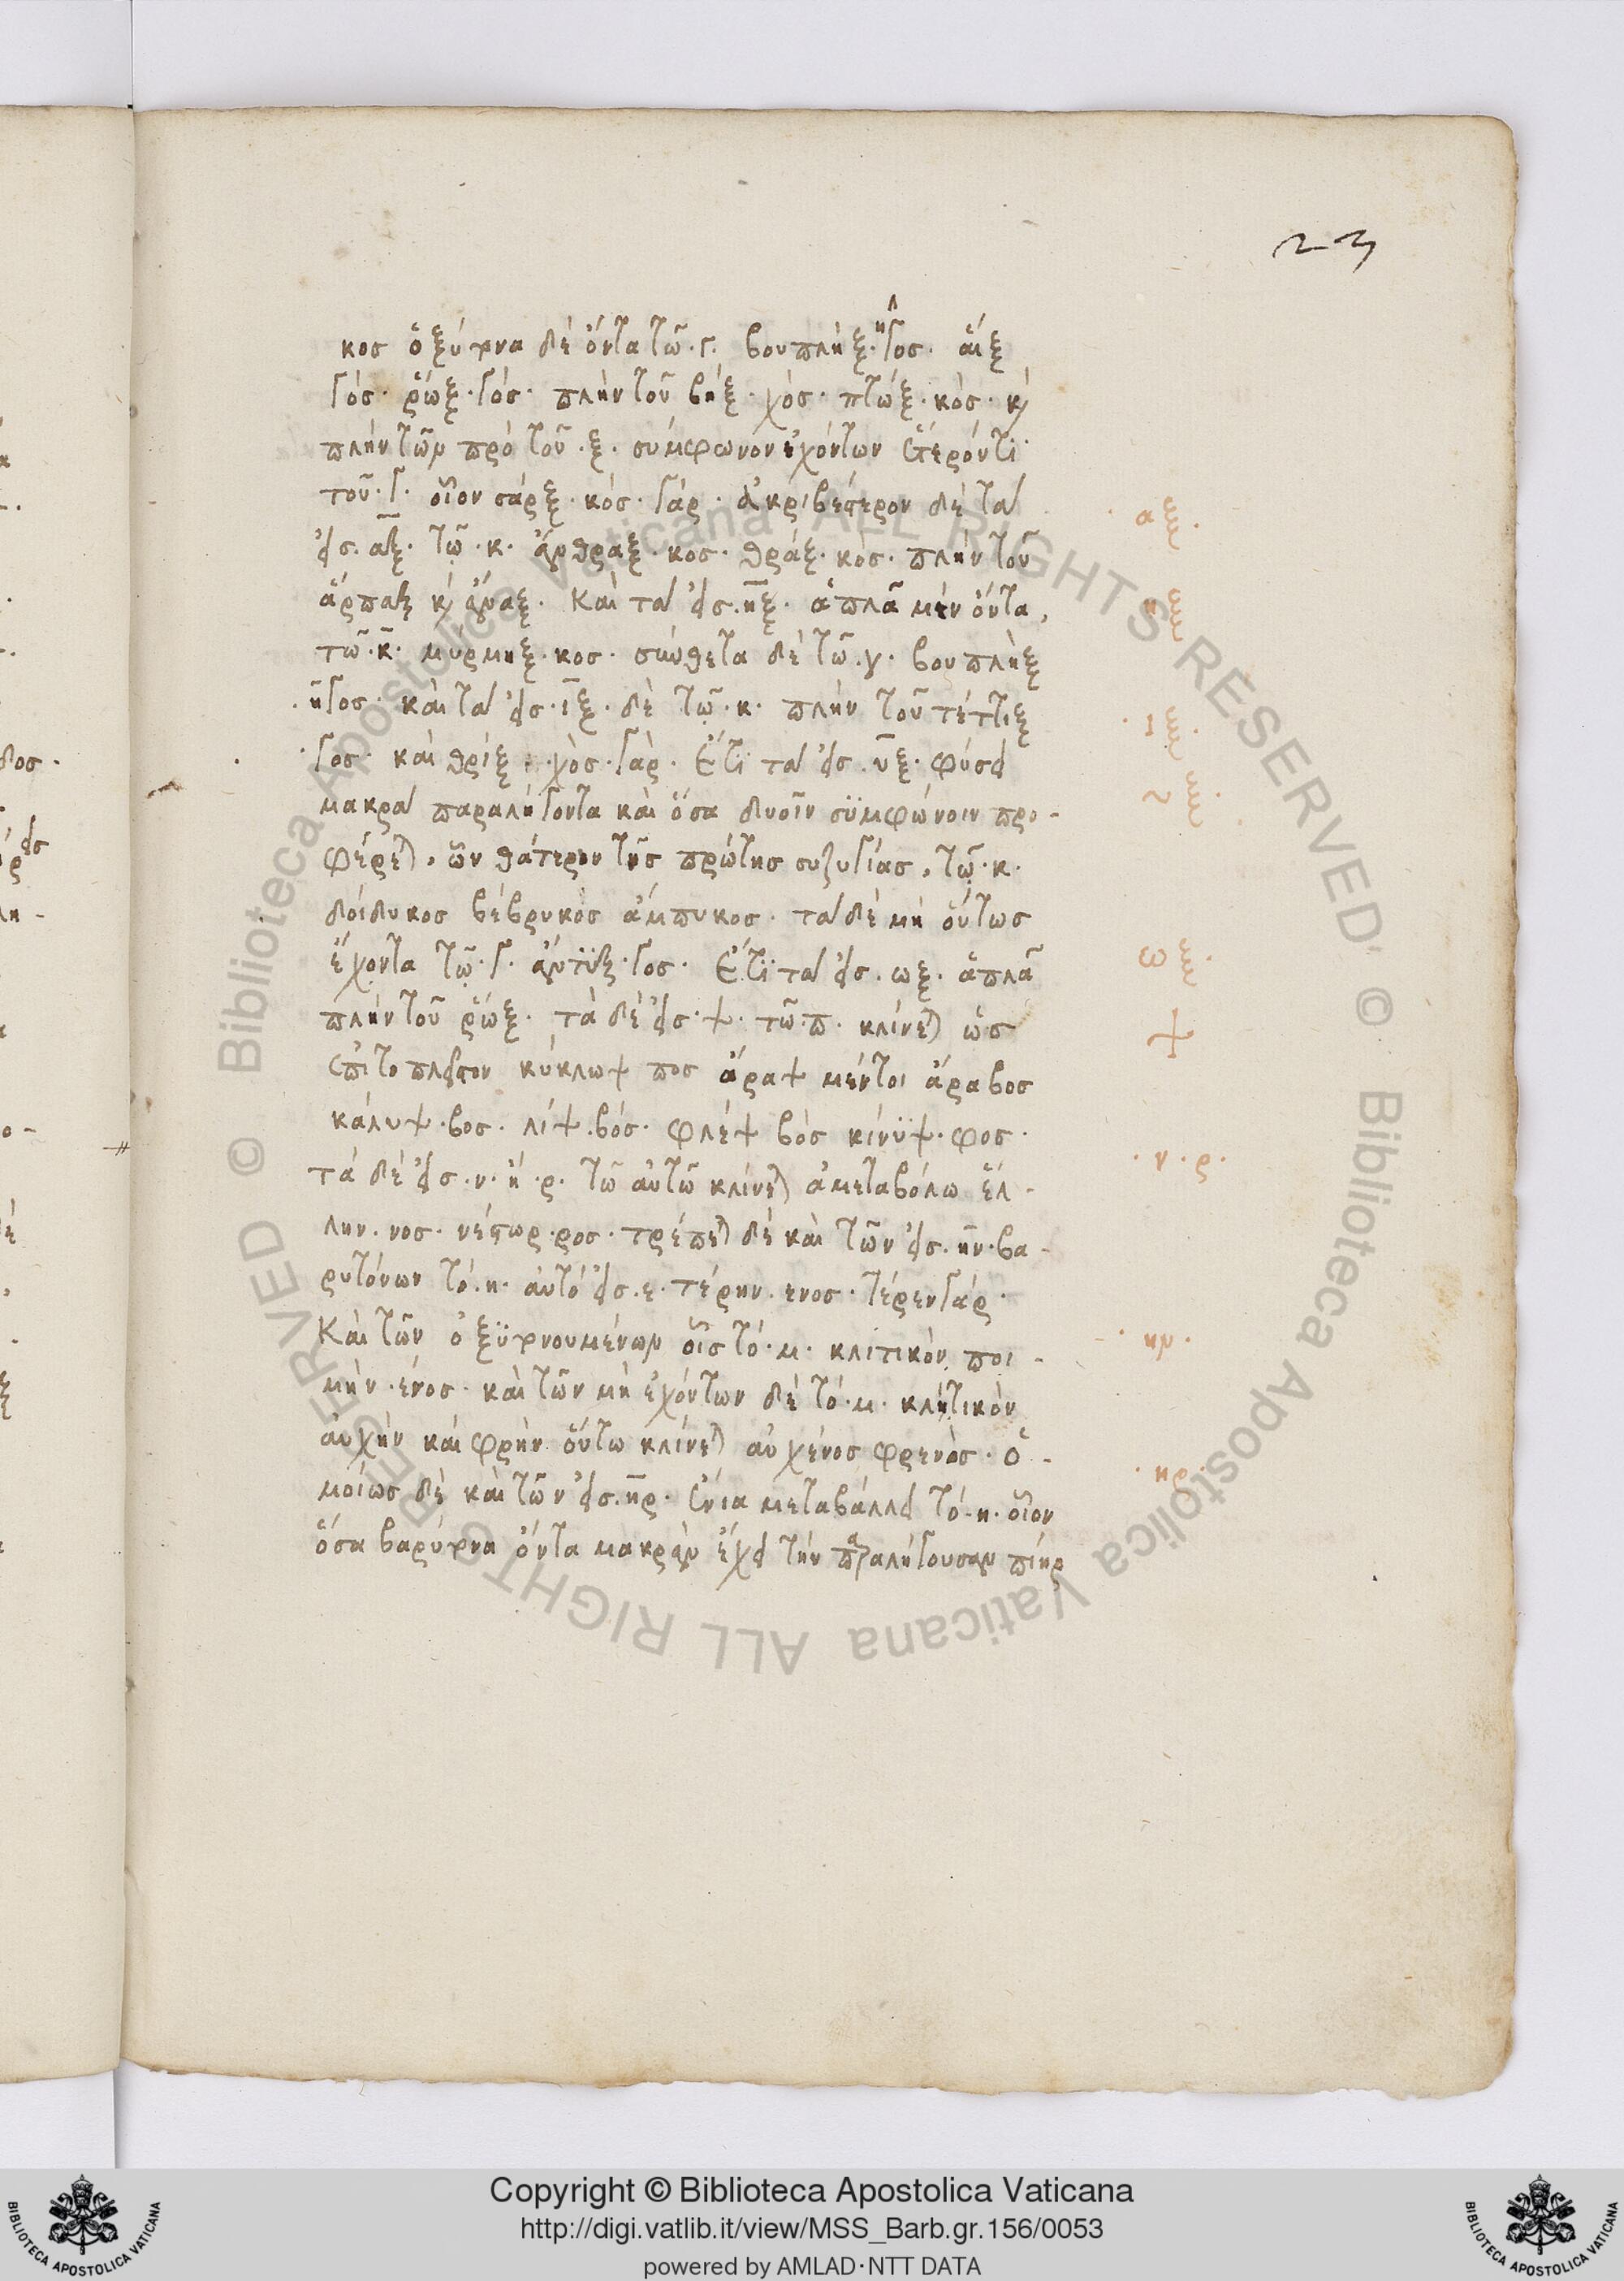 23
κος ὀξύτονα δὲ ὄντα τῶ · γ · βουπλήξ · ῆγος · αἴξ
γός · ῥώξ · γός · πλὴν τοῦ βήξ · χός · πτώξ · κός · κ
πλὴν τῶν πρὸ τοῦ · ξ · σύμφωνον ἐχόντων ἕτερόν τι
τοῦ · γ · οἷον σάρξ · κός · γάρ · ἀκριβέστερον δὲ τὰ
εἰς · αξ · τῷ · κ · ἄνθραξ · κος · θράξ · κός · πλὴν τοῦ
ἅρπαξ κ ἄναξ · καὶ τὰ εἰς · ηξ · ἁπλᾶ μὲν ὄντα ,
τῶ · κ · μύρμηξ · κος · σύνθετα δὲ τῶ · γ · βουπλὴξ
· ῆγος · καὶ τὰ εἰς · ιξ · δὲ τῷ · κ · πλὴν τοῦ τέττιξ
· γος · καὶ θρίξ · χὸς · γὰρ · ἔτι τὰ εἰς · υξ · φύσει
μακρὰ παραλήγοντα καὶ ὅσα δυοῖν συμφώνοιν προ -
φέρεται , ὧν θάτερον τῆς πρώτης συζυγίας , τῷ · κ ·
δοίδυκος βέβρυκος ἄμπυκος · τὰ δὲ μὴ οὕτως
ἔχοντα τῷ · γ · ἄντυξ · γος · ἔτι τὰ εἰς · ωξ · ἁπλᾶ
πλὴν τοῦ ῥώξ · τὰ δὲ εἰς · ψ · τῶ · π · κλίνεται ὡς
ἐπὶ το πλεῖστον κύκλωψ πος ἄραψ μέντοι ἄραβος
κάλυψ · βος · λίψ · βός · φλέψ βὸς κίνυψ · φος ·
τὰ δὲ εἰς · ν · ἢ · ρ · τῶ αὐτῶ κλίνεται ἀμεταβόλω ἕλ -
λην · νος · νέστωρ · ρος · τρέπεται δὲ καὶ τῶν εἰς · ην · βα -
ρυτόνων τό · η · αὐτὸ εἰς · ε · τέρην · ενος · τέρεν γάρ ·
Καὶ τῶν ὀξυτονουμένων οἷς τό · μ · κλιτικόν ποι -
μὴν · ένος · καὶ τῶν μὴ ἐχόντων δὲ τό · μ · κλητικὸν
αὐχὴν καὶ φρὴν οὕτω κλίνεται αὐχένος φρενὸς · ὁ -
μοίως δὲ καὶ τῶν εἰς · ηρ · ἔνια μεταβάλλει τό · η · οἷον
ὅσα βαρύτονα ὄντα μακρὰν ἔχει τὴν παραλήγουσαν πίηρ
· αξ ·
ηξ
· ιξ
υξ
ωξ
ψ
· ν · ρ ·
· ην ·
· ηρ ·
Copyright © Biblioteca Apostolica Vaticana
http://digi.vatlib.it/view/MSS_Barb.gr.156/0053
powered by AMLAD·NTT DATA